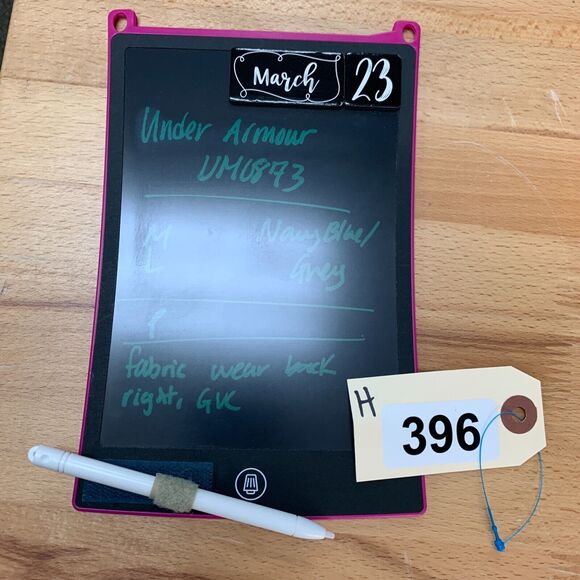 March 23
Under Armour
UM0873
M Navy Blue/
L Grey
P
fabric wear back
right, GVC
H
396